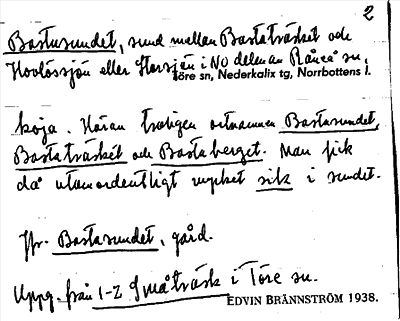 2
Bastusundet, sund mellan Bastuträsket och
Hovlössjön eller Storsjön i NO delen av Råneå sn,
Töre sn, Nederkalix tg, Norrbottens l.
koja. Häran troligen ortnamnen Bastusundet,
Bastuträsket och Bastuberget. Man fick
då utomordentligt mycket sik i sundet.
Jfr. Bastusundet, gård.
Uppg. från 1-2 Småträsk i Töre sn.
EDVIN BRÄNNSTRÖM 1938.